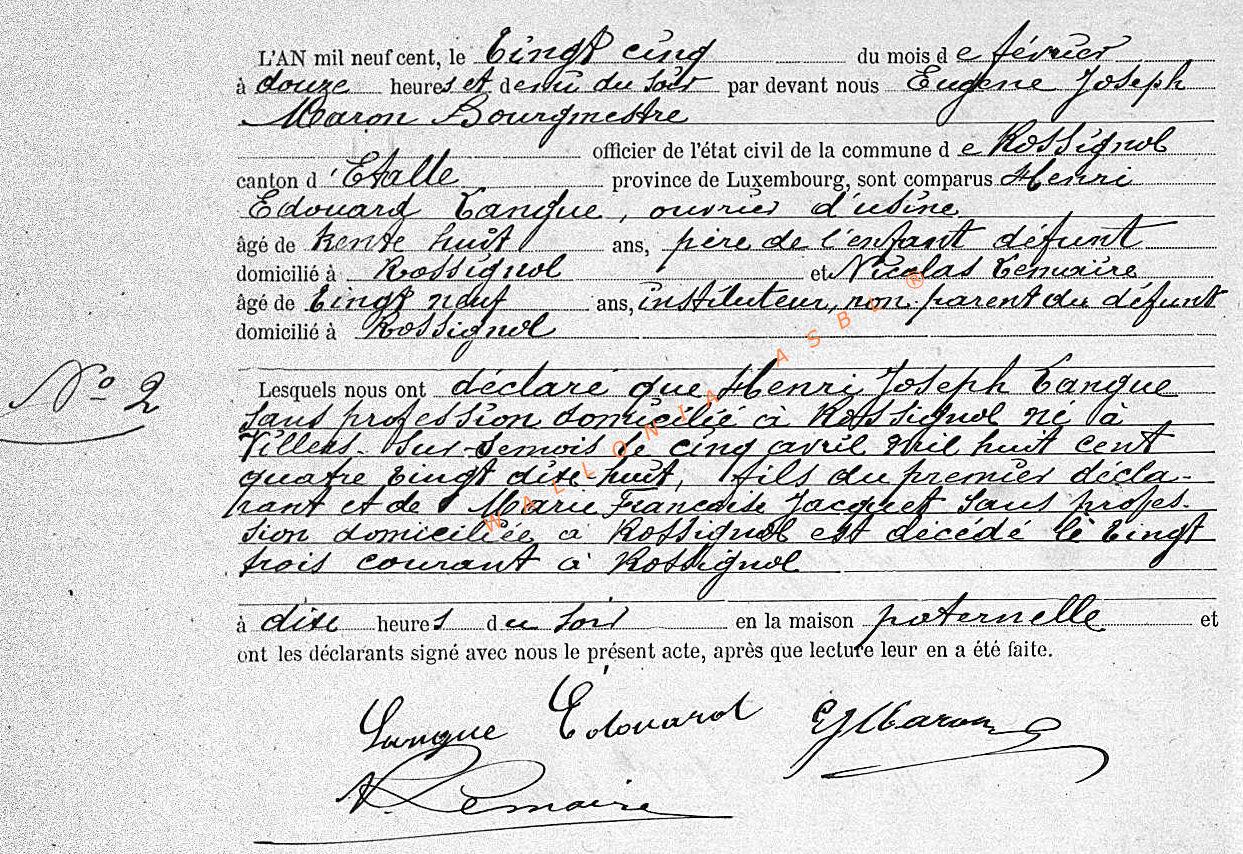 L'AN mil neuf cent, le Vingt cinq du mois de février
à douze heures et demi du soir par devant nous Eugène Joseph
Maron Bourgmestre
officier de l'état civil de la commune de Rossignol
canton d'Etalle province de Luxembourg, sont comparus Henri
Edouard Langue, ouvrier d'usine
âgé de trente huit ans, père de l'enfant défunt
domicilié à Rossignol et Nicolas Lemaire
âgé de Vingt neuf ans, instituteur, non parent du défunt
domicilié à Rossignol
N° 2
Lesquels nous ont déclaré que Henri Joseph Langue
sans profession domicilié à Rossignol né à
Villers-sur-Semois le cinq avril mil huit cent
quatre vingt dix-huit, fils du premier décla-
rant et de Marie Françoise Jacquet sans profes-
sion domiciliée à Rossignol est décédé le Vingt
trois courant à Rossignol
à dix heures du soir en la maison paternelle et
ont les déclarants signé avec nous le présent acte, après que lecture leur en a été faite.
Langue Edouard EJMaron
N. Lemaire
WALLONIA ASBL ®